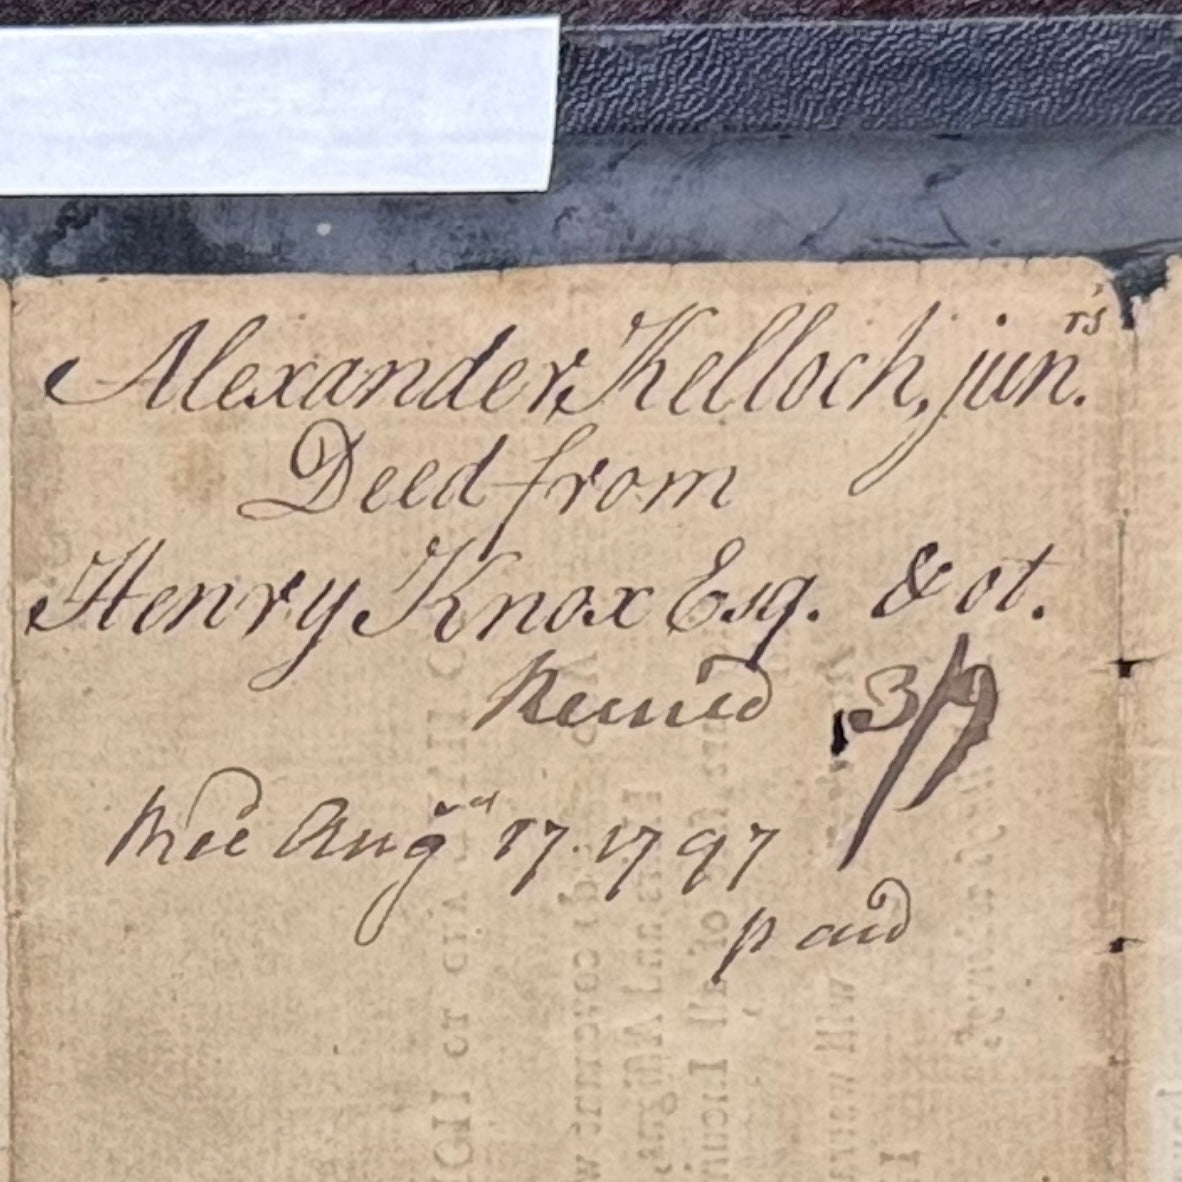 Alexander Kelloch, junr's.
Deed from
Henry Knox Esq. & ot.
Received 3/9
Recd Augst 17. 1797
paid